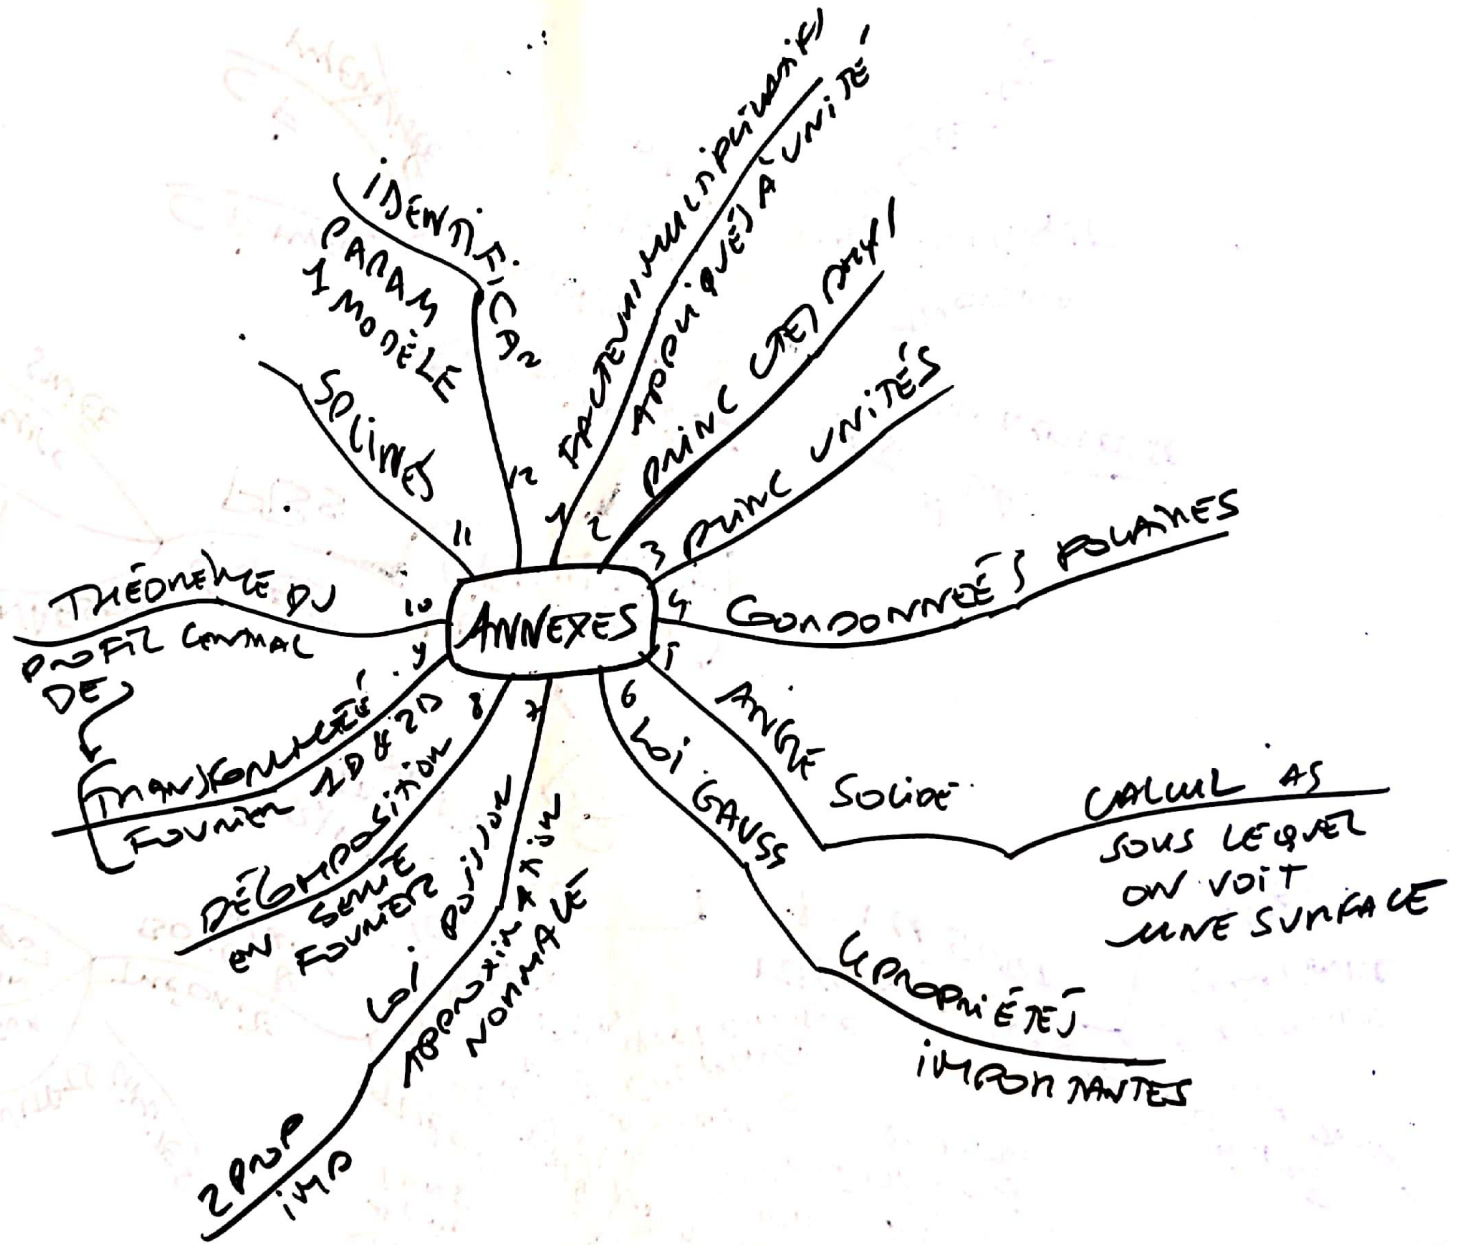 ANNEXES
1
FACTEURS MULTIPLICATIFS
APPLIQUÉS À UNITÉ
2
PRINC CTES PHYS
3
PRINC UNITÉS
4
COORDONNÉES POLAIRES
5
ANGLE SOLIDE
CALCUL AS
SOUS LEQUEL
ON VOIT
UNE SURFACE
6
LOI GAUSS
4 PROPRIÉTÉS
IMPORTANTES
7
LOI POISSON
APPROXIMATION
NORMALE
2 PROP
IMP
8
DÉCOMPOSITION
EN SERIE
FOURIER
9
TRANSFORMÉE
FOURIER 1D & 2D
10
THÉOREME DU
PROFIL CENTRAL
DE
11
SPLINES
12
IDENTIFICA
PARAM
1 MODÈLE